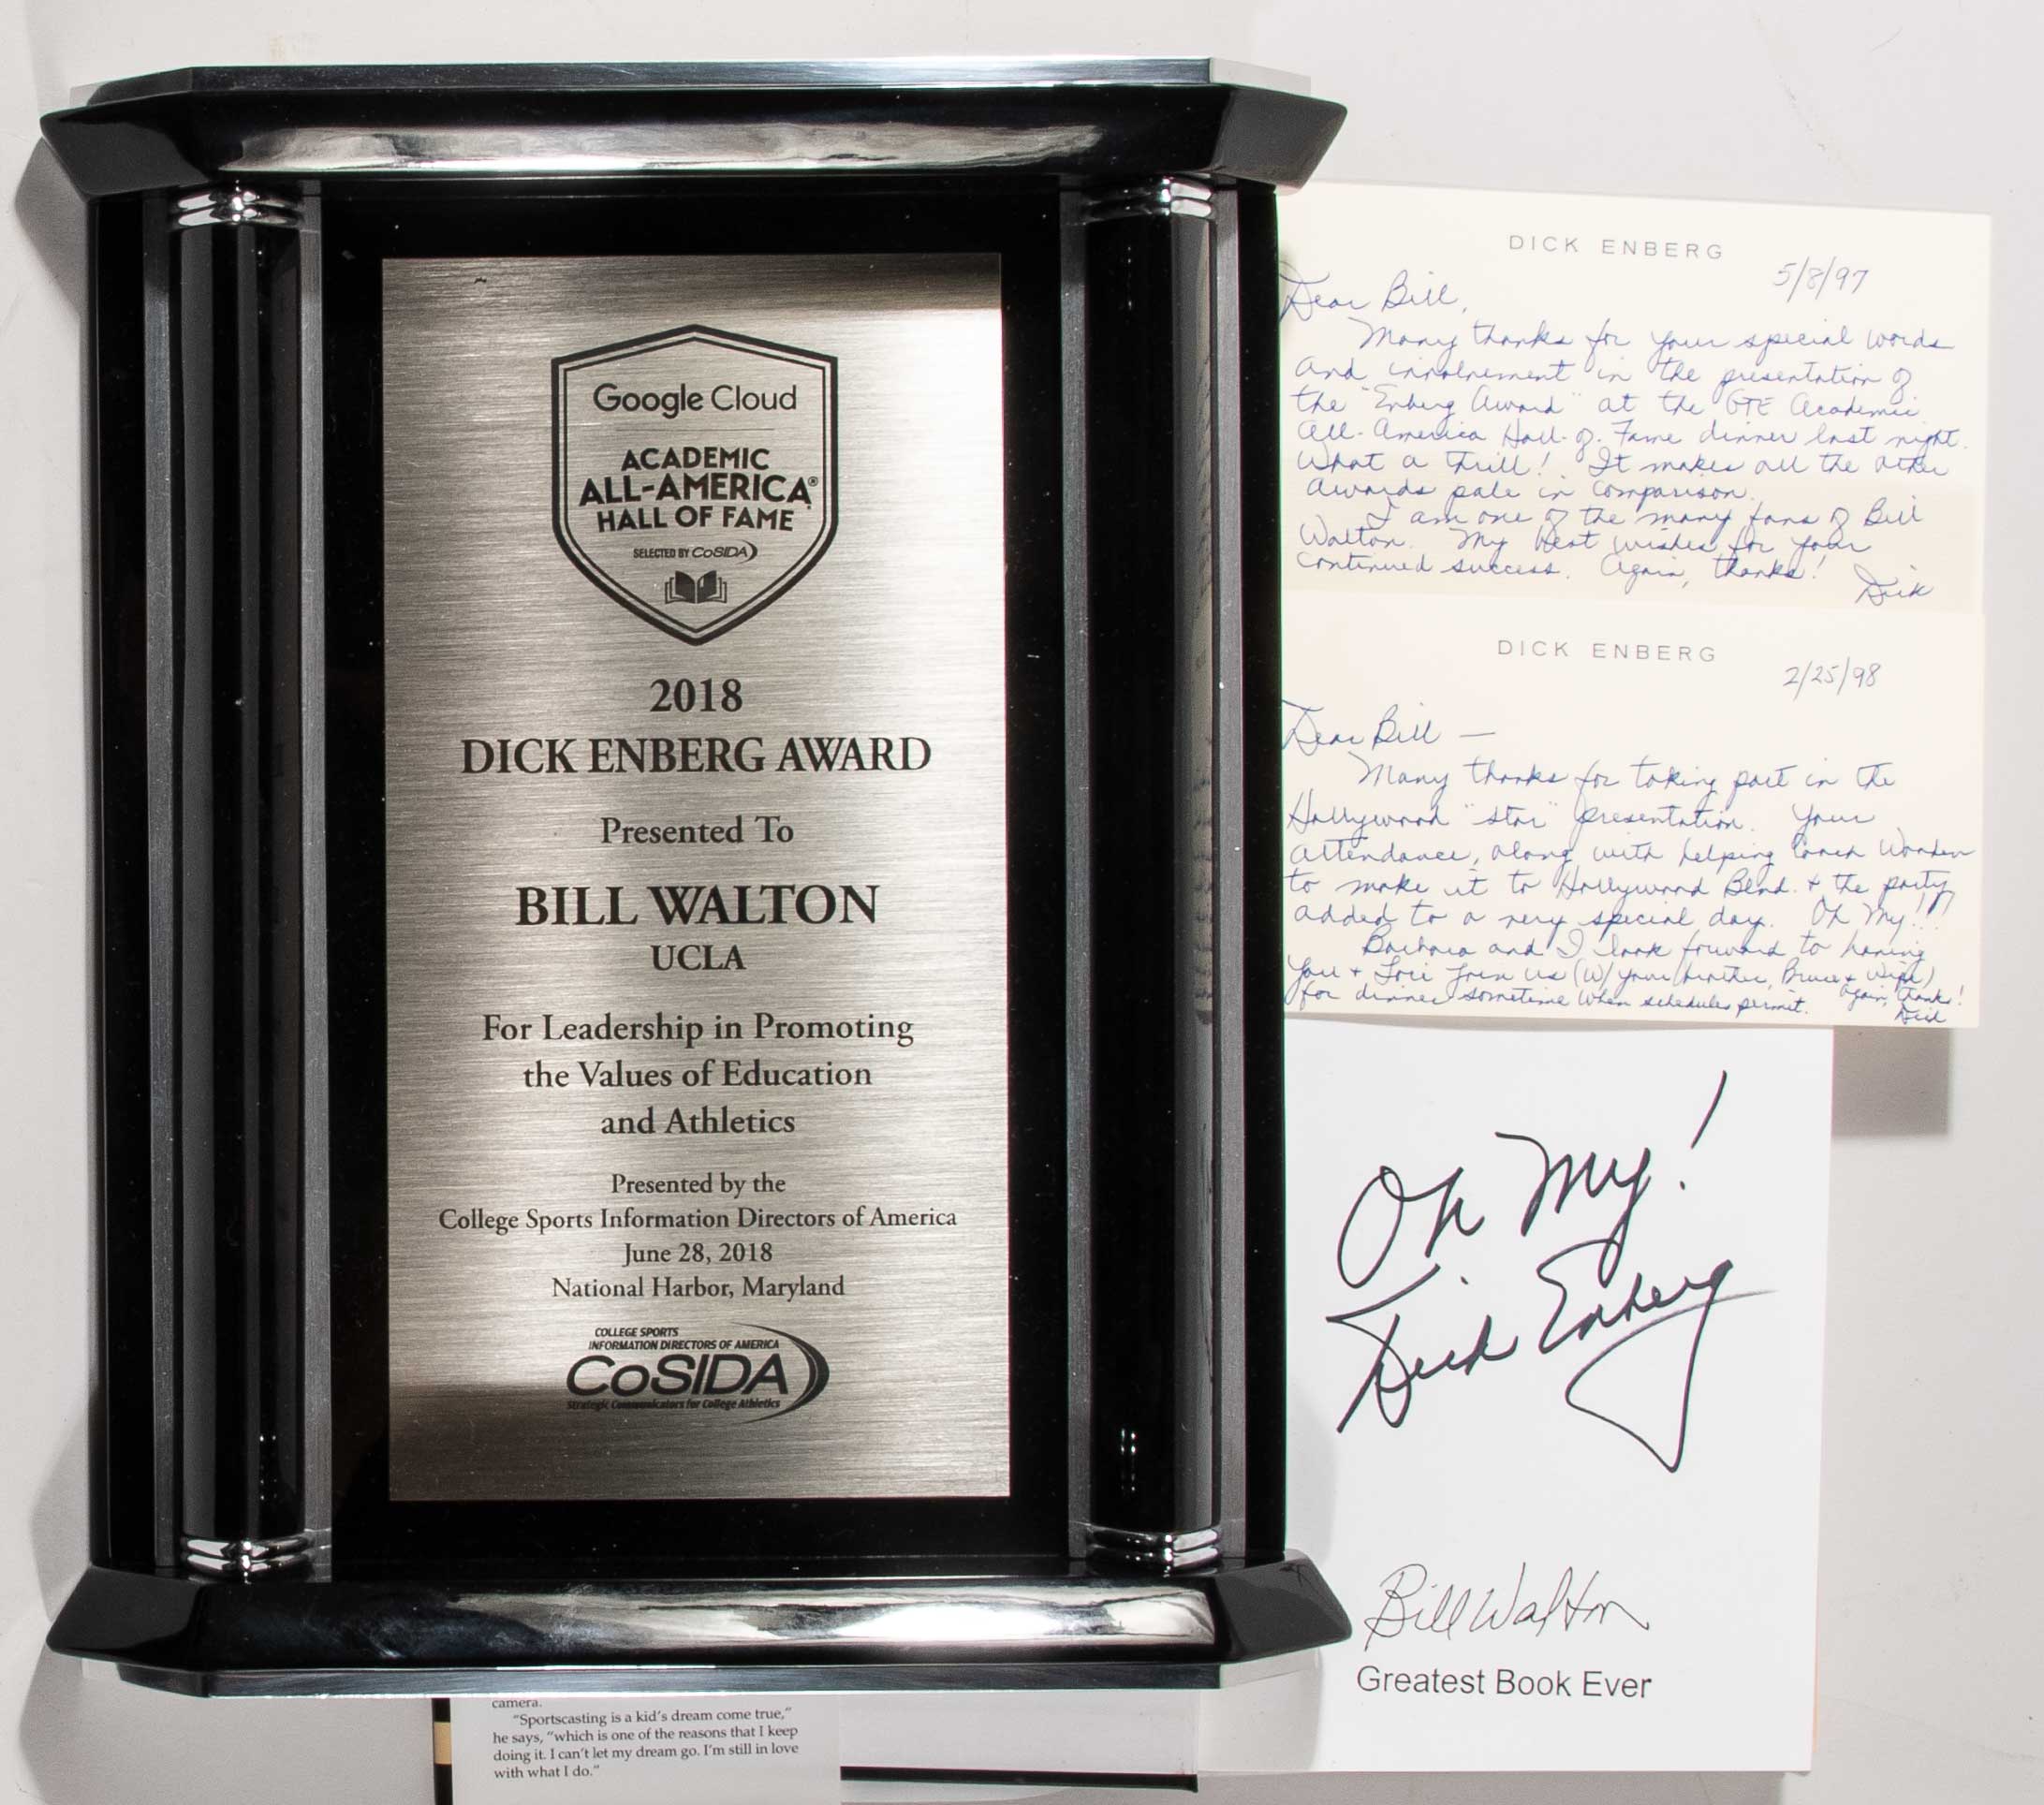 Google Cloud
ACADEMIC
ALL-AMERICA®
HALL OF FAME
SELECTED BY CoSIDA
2018
DICK ENBERG AWARD
Presented To
BILL WALTON
UCLA
For Leadership in Promoting
the Values of Education
and Athletics
Presented by the
College Sports Information Directors of America
June 28, 2018
National Harbor, Maryland
COLLEGE SPORTS
INFORMATION DIRECTORS OF AMERICA
CoSIDA
Strategic Communicators for College Athletics
DICK ENBERG
5/8/97
Dear Bill,
Many thanks for your special words
and involvement in the presentation of
the "Enberg Award" at the GTE Academic
All-America Hall-of-Fame dinner last night.
What a thrill! It makes all the other
awards pale in comparison.
I am one of the many fans of Bill
Walton. My best wishes for your
continued success. Again, thanks!
Dick
DICK ENBERG
2/25/98
Dear Bill —
Many thanks for taking part in the
Hollywood "star" presentation. Your
attendance, along with helping Coach Wooden
to make it to Hollywood Blvd. + the party,
added to a very special day. Oh My!!!
Barbara and I look forward to having
you + Lori join us (w/ your brother, Bruce + wife)
for dinner sometime when schedules permit. Again, thanks!
Dick
Oh My!
Dick Enberg
Bill Walton
Greatest Book Ever
camera.
"Sportscasting is a kid's dream come true,"
he says, "which is one of the reasons that I keep
doing it. I can't let my dream go. I'm still in love
with what I do."